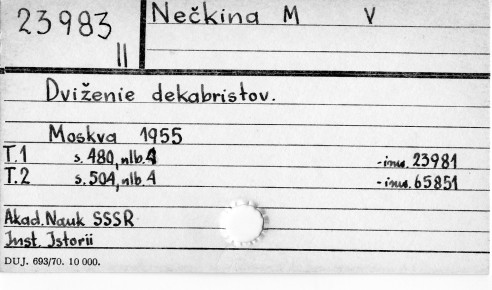 23983 II
Nečkina M V
Dviženie dekabristov.
Moskva 1955
T.1 s. 480, nlb. 4 -inv. 23981
T.2 s. 504, nlb. 4 -inv. 65851
Akad. Nauk SSSR
Inst. Istorii
DUJ. 693/70. 10 000.